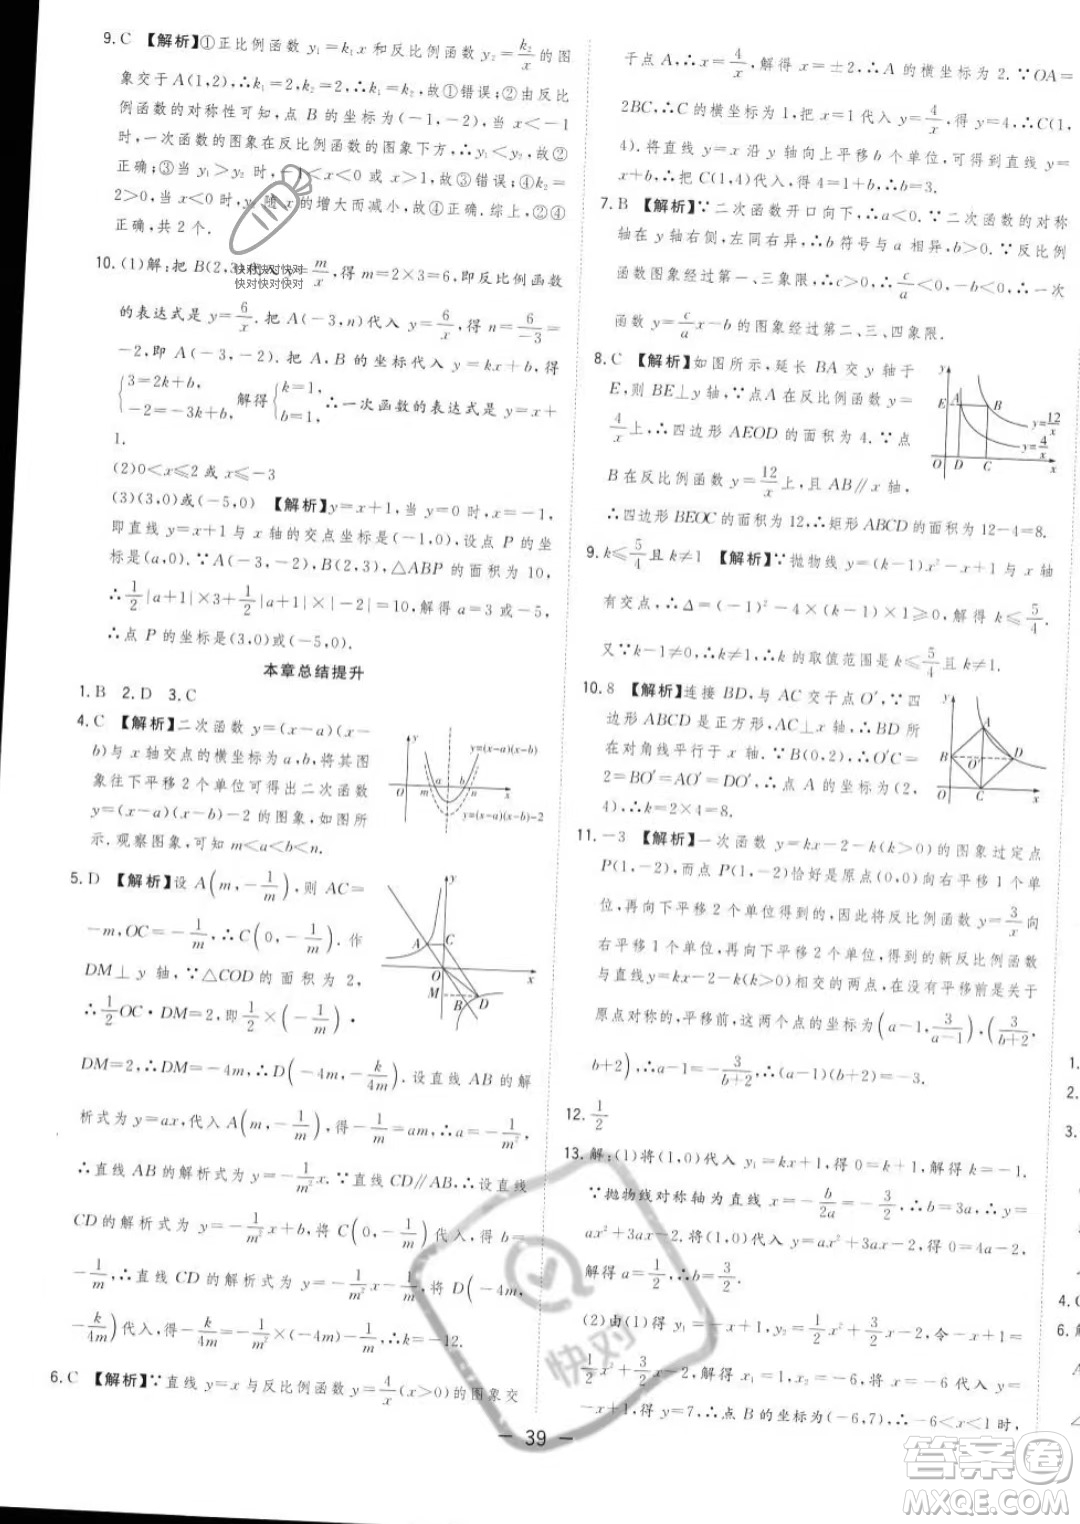 9. C 【解析】①正比例函数 y₁=k₁x 和反比例函数 y₂=k₂/x 的图
象交于 A(1,2),∴k₁=2,k₂=2,故①错误;②由反比
例函数的对称性可知,点 B 的坐标为(-1,-2),当 x<-1
时,一次函数的图象在反比例函数图象下方,∴y₁<y₂,故②
正确;③当 y₁>y₂ 时,-1<x<0 或 x>1,故③错误;④k₂=
2>0,当 x>0 时,y₂ 随 x 的增大而减小,故④正确.综上,正确的
共 2 个.
10. (1)解:把 B(2,3)代入 y=m/x,得 m=2×3=6,即反比例函数
的表达式是 y=6/x.把 A(-3,n)代入 y=6/x,得 n=6/-3=
-2,即 A(-3,-2).把 A、B 的坐标代入 y=kx+b,得
{3=2k+b, -2=-3k+b,解得{k=1, b=1,∴一次函数的表达式是 y=x+
1.
(2)0<x≤2 或 x≤-3
(3)(3,0)或(-5,0) 【解析】y=x+1,当 y=0 时,x=-1,
即直线 y=x+1 与 x 轴的交点坐标为(-1,0),设点 P 的坐
标是(a,0).∵A(-3,-2),B(2,3),△ABP 的面积为 10,
∴1/2|a+1|×3+1/2|a+1|×|-2|=10,解得 a=3 或-5,
∴点 P 的坐标是(3,0)或(-5,0).
本章总结提升
1. B 2. D 3. C
4. C 【解析】二次函数 y=(x-a)(x-
b)与 x 轴交点的横坐标为 a,b,将其图
象往下平移 2 个单位可得出二次函数
y=(x-a)(x-b)-2 的图象,如图所
示.观察图象,可知 m<a<b<n.
y y=(x-a)(x-b)
a b
O m n x
y=(x-a)(x-b)-2
5. D 【解析】设 A(m,-1/m),则 AC=
-m,OC=-1/m,∴C(0,-1/m).作
DM⊥y 轴,∵△COD 的面积为 2,
∴1/2OC·DM=2,即1/2×(-1/m)×
DM=2,∴DM=-4m,∴D(-4m,-k/4m).设直线 AB 的解
析式为 y=ax,代入 A(m,-1/m),得-1/m=am,∴a=-1/m²,
∴直线 AB 的解析式为 y=-1/m²x.∵CD∥AB,∴设直线
CD 的解析式为 y=-1/m²x+b,将 C(0,-1/m)代入,得 b=
-1/m,∴直线 CD 的解析式为 y=-1/m²x-1/m,将 D(-4m,
-k/4m)代入,得-k/4m=-1/m²·(-4m)-1/m,∴k=-12.
y
A C
O x
M B D
6. C 【解析】∵直线 y=x 与反比例函数 y=4/x(x>0)的图象交
于点 A,∴x=4/x,解得 x=±2,∴A 的横坐标为 2.∵OA=
2BC,∴C 的横坐标为 1,把 x=1 代入 y=4/x,得 y=4,∴C(1,
4).将直线 y=x 沿 y 轴向上平移 b 个单位,可得到直线 y=
x+b,∴把 C(1,4)代入,得 4=1+b,∴b=3.
7. B 【解析】∵二次函数开口向下,∴a<0.∵二次函数的对称
轴在 y 轴右侧,左同右异,∴b 符号与 a 相异,b>0.∵反比例
函数图象经过第一、三象限,∴c>0,∴c/a<0,-b<0,∴一次
函数 y=c/a x-b 的图象经过第二、三、四象限.
8. C 【解析】如图所示,延长 BA 交 y 轴于
E,则 BE⊥y 轴,∵点 A 在反比例函数 y=
4/x上,∴四边形 AEOD 的面积为 4.∵点
B 在反比例函数 y=12/x上,且 AB∥x 轴,
∴四边形 BEOC 的面积为 12,∴矩形 ABCD 的面积为 12-4=8.
y
E A B
y=12/x
y=4/x
O D C x
9. k≤5/4且 k≠1 【解析】∵抛物线 y=(k-1)x²-x+1 与 x 轴
有交点,∴Δ=(-1)²-4×(k-1)×1≥0,解得 k≤5/4.
又∵k-1≠0,∴k≠1,∴k 的取值范围是 k≤5/4且 k≠1.
10. 8 【解析】连接 BD,与 AC 交于点 O′,∵四
边形 ABCD 是正方形,AC⊥x 轴,∴BD 所
在对角线平行于 x 轴.∵B(0,2),∴O′C=
2=BO′=AO′=DO′,∴点 A 的坐标为(2,
4),∴k=2×4=8.
y
A
B O′ D
O C x
11. -3 【解析】一次函数 y=kx-2-k(k>0)的图象过定点
P(1,-2),而点 P(1,-2)恰好是原点(0,0)向右平移 1 个单
位,向下平移 2 个单位得到的,因此将反比例函数 y=3/x向
右平移 1 个单位,再向下平移 2 个单位,得到的新反比例函数
与直线 y=kx-2-k(k>0)相交的两点,在没有平移前是关于
原点对称的,平移前,这两个点的坐标为(a-1,3/a-1),(3/b+2,
b+2),∴a-1=-3/b+2,∴(a-1)(b+2)=-3.
12. 1/2
13. 解:(1)将(1,0)代入 y₁=kx+1,得 0=k+1,解得 k=-1.
∵抛物线对称轴为直线 x=-b/2a=-3/2,∴b=3a,∴y₂=
ax²+3ax-2.将(1,0)代入 y₂=ax²+3ax-2,得 0=a+3a-2,
解得 a=1/2,∴b=3/2.
(2)由(1)得 y₁=-x+1,y₂=1/2x²+3/2x-2,令-x+1=
1/2x²+3/2x-2,解得 x₁=1,x₂=-6.将 x=-6 代入 y₁=
-x+1,得 y₁=7,∴点 B 的坐标为(-6,7),∴-6<x<1 时,
— 39 —
快对快对快对
快对快对快对
快对
答案圈
MXQE.COM